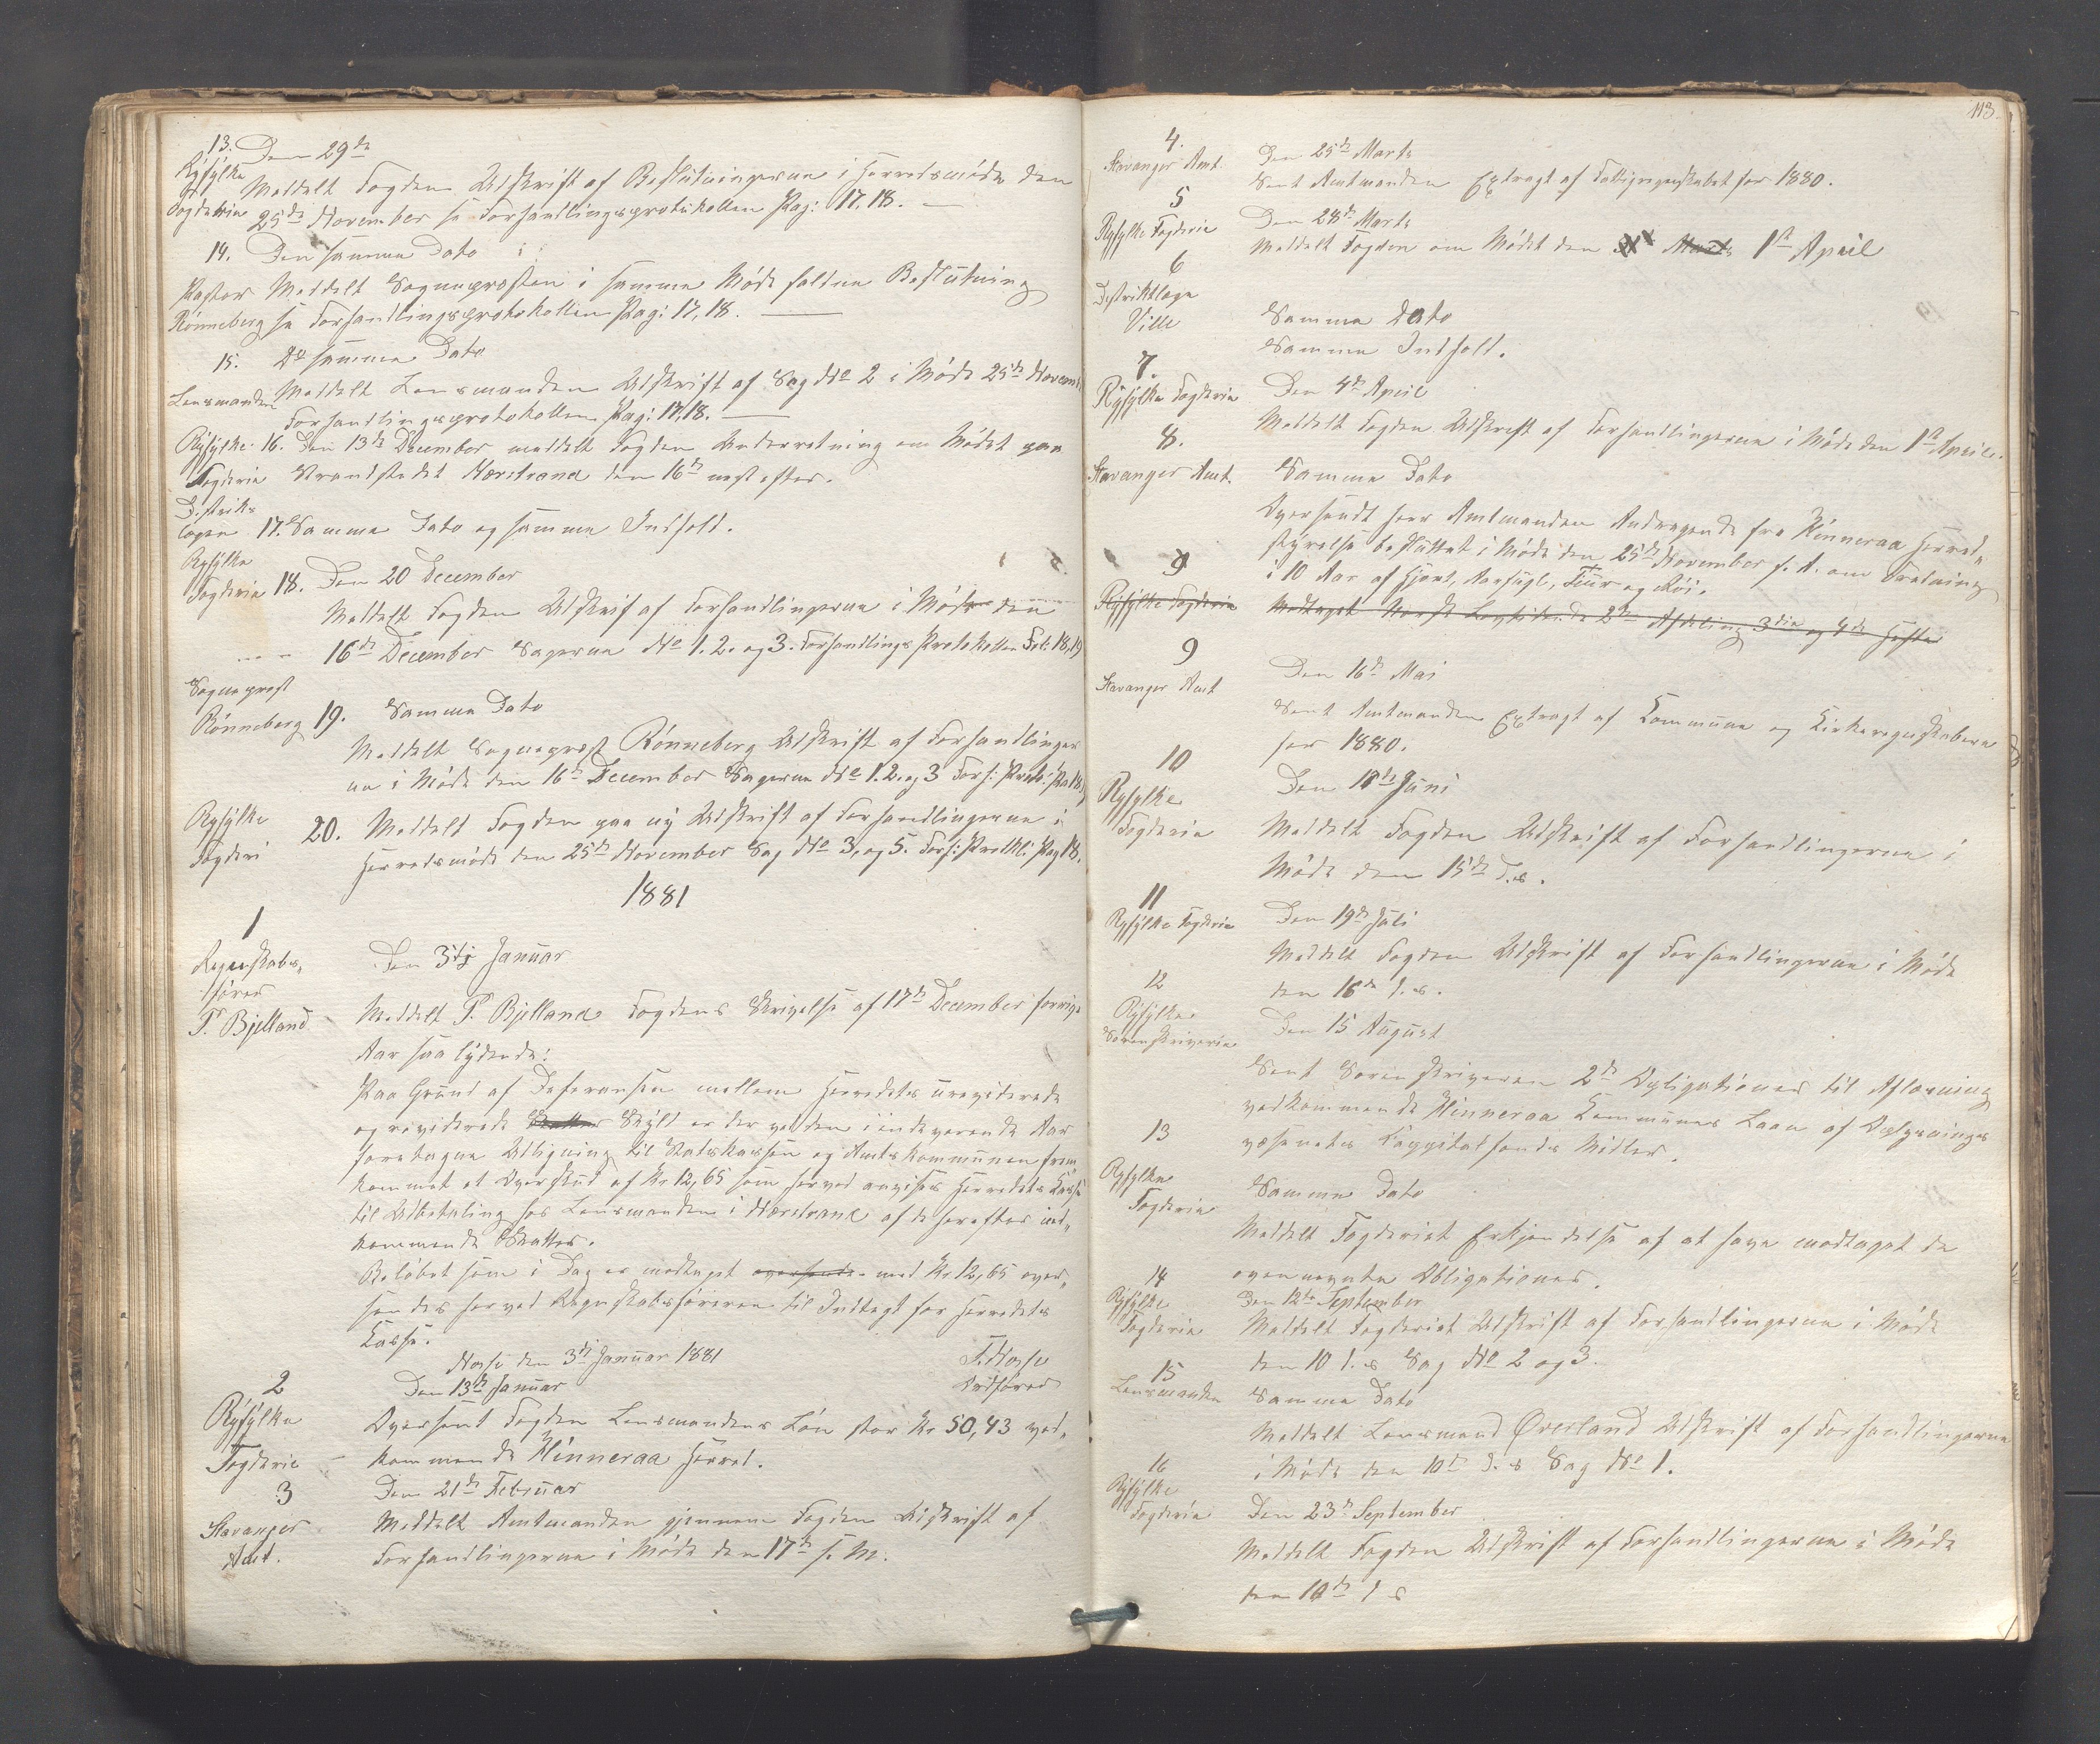 13. Den 29de
Ryfylke Meddelt Fogden Udskrift af Beslutningerne i Herredsmøde den
Fogderie 25de November se Forhandlingsprotokollen Pag: 17, 18. —
14. Den samme Dato
Pastor Meddelt Sognepresten i samme Møde fattne Beslutning
Rönneberg se Forhandlingsprotokollen Pag: 17, 18. —
15. D: samme Dato
Lensmanden Meddelt Lensmanden Udskrift af Sag No 2 i Møde 25de Novemb
Forhandlingsprotokollen Pag: 17, 18. —
Ryfylke 16. Den 13de December meddelt Fogden Underretning om Mødet paa
Fogderie Strandstedet Nerstrand den 16de nestefter.
Distrikts
lægen 17. Samme Dato og samme Indhold.
Ryfylke
Fogderie 18. Den 20 December
Meddelt Fogden Udskrif af Forhandlingerne i Møde den
16de December Sagerne No 1. 2. og 3. Forhandlings Protokollen Fol: 18, 19
Sogneprest
Rönneberg 19. Samme Dato
Meddelt Sogneprest Rönneberg Udskrift af Forhandlinger
ne i Møde den 16de December Sagerne No 1. 2. og 3 Forh: Protk: Pa 18,
Ryfylke 20. Meddelt Fogden paa ny Udskrift af Forhandlingerne i
Fogderi Herredsmöde den 25de November Sag No 3, og 5. Forh: Protkl: Pag 18.
1881
1
Regnskabs-
fører
Den 3dj Januar
T. Bjelland Meddelt T. Bjelland Fogdens Skrivelse af 17de December forrige
Aar saa lydende:
Paa Grund af Deferansen mellem Herredets ureviderede
og reviderede Skatter Skyld er der ved den i indeverende Aar
foretagne Utligning til Statskassen og Amtskommunen frem
kommet et Overskud af Kr 12,65 som herved anvises Herredets Kasse
til Udbetaling hos Lensmanden i Nerstrand af de herefter ind-
kommende Skatter.
Beløbet som i Dag er modtaget oversendes med Kr 12,65 over-
sendes herved Regnskabsføreren til Indtægt for Herredets
Kasse.
Hose den 3de Januar 1881
T. Hose
Ordfører
2
Den 13de Januar
Ryfylke Oversent Fogden Lensmandens Løn stor Kr 50,43 ved-
Fogderie kommende Hinneraa Herred.
3
Den 21de Februar
Stavanger Meddelt Amtmanden gjennem Fogden Udskrift af
Amt. Forhandlingerne i Møde den 17de s. M.
113.
4.
Den 25de Marts
Stavanger Amt. Sent Amtmanden Extragt af Fattigregnskabet for 1880.
5
Den 28de Marts
Ryfylke Fogderie Meddelt Fogden om Mødet den Marts 1ste April
6
Distriktlæge
Ville Samme Dato
Samme Indhold.
7.
Ryfylke Fogderie Den 4de April
Meddelt Fogden Udskrift af Forhandlingerne i Møde den 1ste April.
8.
Stavanger Amt. Samme Dato
Oversendt Herr Amtmanden Andragende fra Hinneraa Herred-
styrelse besluttet i Møde den 25de November f. A. om Fredning
i 10 Aar af Hjort, Aarfugl, Tiur og Röi.
9
Ryfylke Fogderie Modtaget Norsk Lovtidende 2den Afdeling 3die og 4de Hefte
9
Den 16de Mai
Stavanger Amt Sent Amtmanden Extragt af Kommune og Kirkeregnskaberne
for 1880.
10
Den 18de Juni
Ryfylke
Fogderie Meddelt Fogden Udskrift af Forhandlingerne i
Møde den 15de d.s.
11
Ryfylke Fogderie Den 19de Juli
Meddelt Fogden Udskrift af Forhandlingerne i Møde
den 16de d.s.
12
Ryfylke
Sorenskriverie Den 15 August
Sent Sorenskriveren 2de Obligationer til Aflæsning
vedkommende Hinneraa Kommunes Laan af Oplysnings
væsenets Kappitalfonds Midler.
13
Ryfylke
Fogderie Samme Dato
Meddelt Fogderiet Erkjendelse af at have modtaget de
ovennevnte Obligationer.
14
Ryfylke Den 12te September
Fogderie Meddelt Fogderiet Udskrift af Forhandlingerne i Møde
den 10 d.s Sag No 2 og 3.
15
Lensmanden Samme Dato
Meddelt Lensmand Överland Udskrift af Forhandlingerne
i Møde den 10de d.s Sag No 1.
16
Ryfylke
Fogderie Den 23de September
Meddelt Fogden Udskrift af Forhandlingerne i Møde
den 10de d s